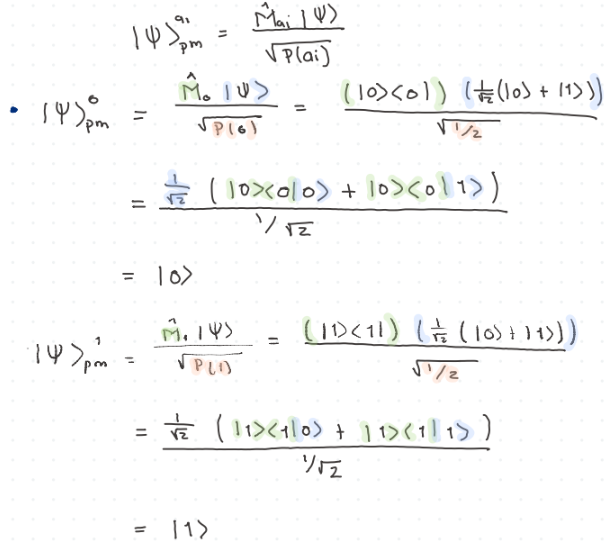 |Ψ⟩ₚₘ^{aᵢ} = M̂ₐᵢ |Ψ⟩ / √P(ai)
• |Ψ⟩ₚₘ^{0} = M̂₀ |Ψ⟩ / √P(0) = (|0⟩⟨0|) (1/√2 (|0⟩ + |1⟩)) / √1/2
= 1/√2 (|0⟩⟨0|0⟩ + |0⟩⟨0|1⟩) / 1/√2
= |0⟩
|Ψ⟩ₚₘ^{1} = M̂₁ |Ψ⟩ / √P(1) = (|1⟩⟨1|) (1/√2 (|0⟩ + |1⟩)) / √1/2
= 1/√2 (|1⟩⟨1|0⟩ + |1⟩⟨1|1⟩) / 1/√2
= |1⟩